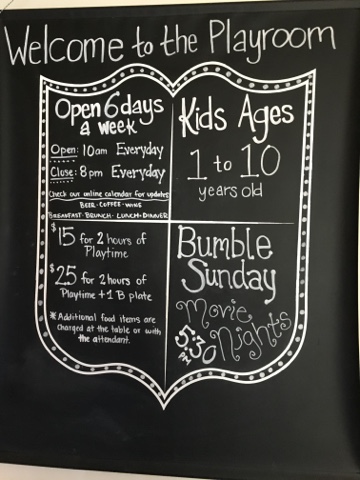 Welcome to the Playroom
Open 6 days
a week
Open: 10am Everyday
Close: 8pm Everyday
Check our online calendar for updates
BEER - COFFEE - WINE
BREAKFAST - BRUNCH - LUNCH - DINNER
$15 for 2 hours of
Playtime
$25 for 2 hours of
Playtime + 1 B plate
* Additional food items are
charged at the table or with
the attendant.
Kids Ages
1 to 10
years old
Bumble
Sunday
Movie
Nights
5:30
PM